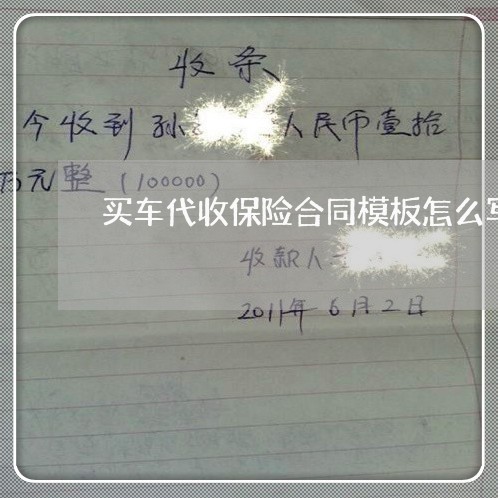 收条
今收到孙 人民币壹拾
万元整(100000)
买车代收保险合同模板怎么写
收款人
2011年6月2日